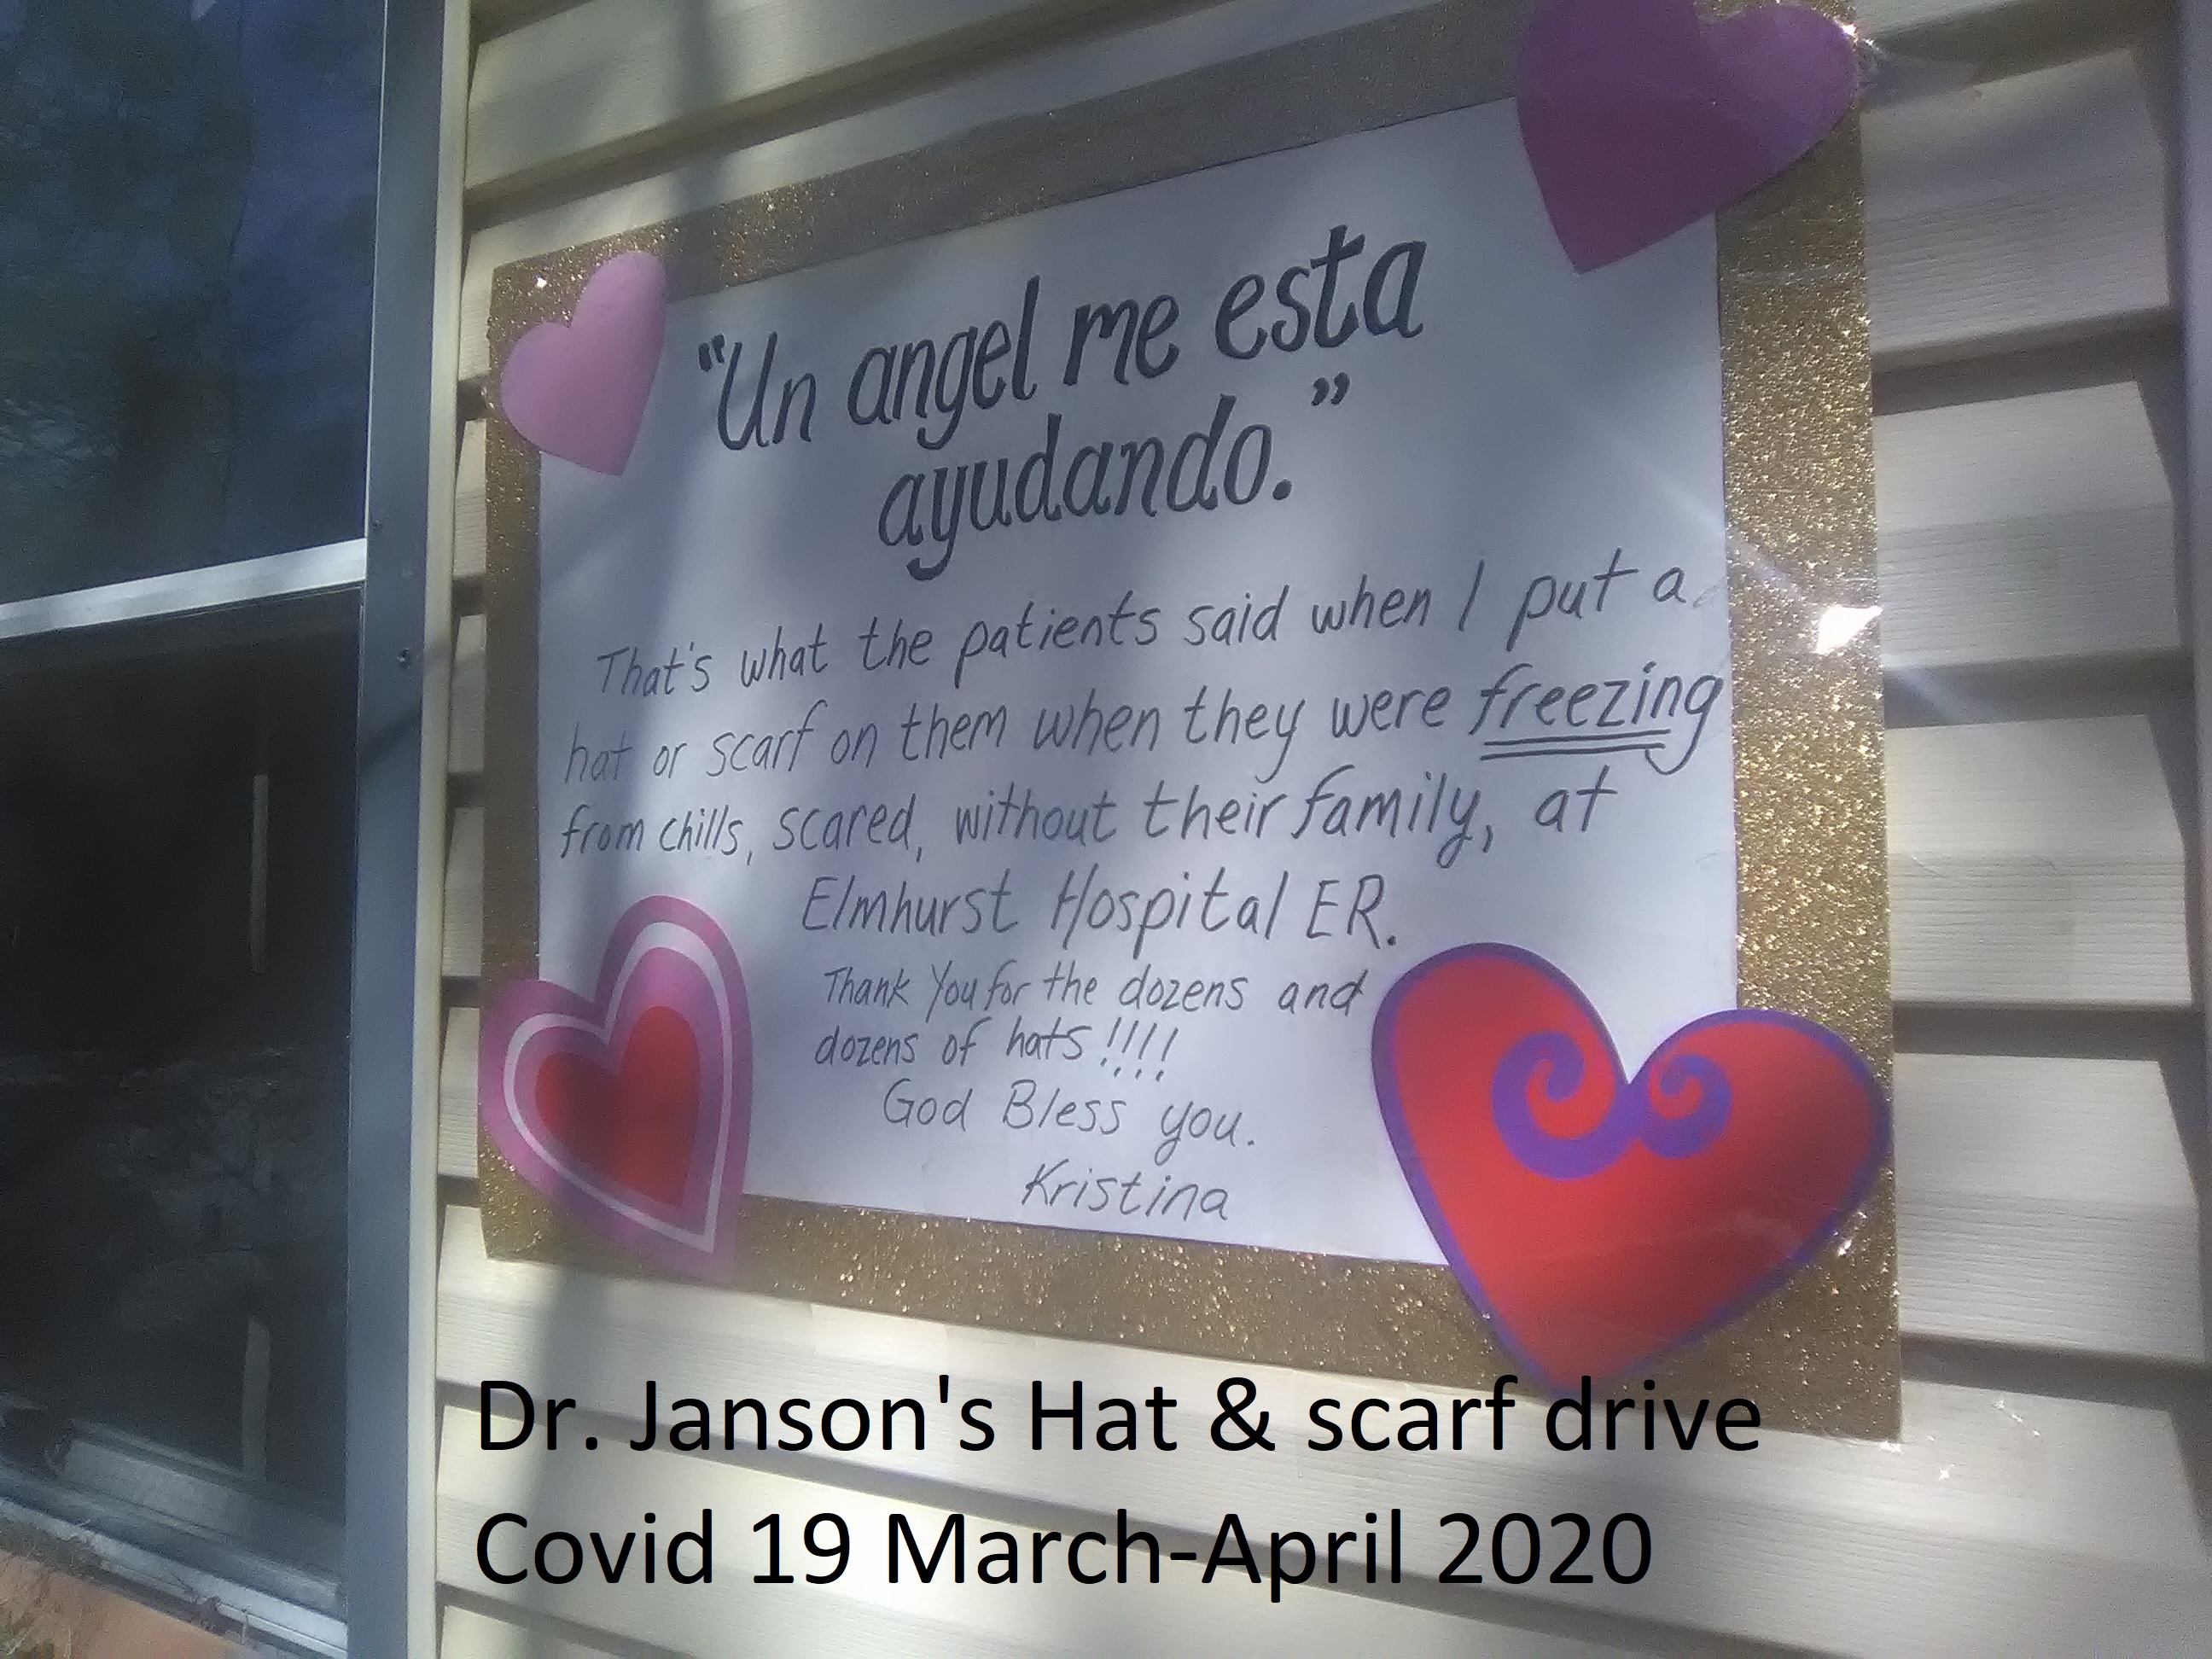 "Un angel me esta
ayudando."
That's what the patients said when I put a
hat or scarf on them when they were freezing
from chills, scared, without their family, at
Elmhurst Hospital ER.
Thank You for the dozens and
dozens of hats!!!!
God Bless you.
Kristina
Dr. Janson's Hat & scarf drive
Covid 19 March-April 2020